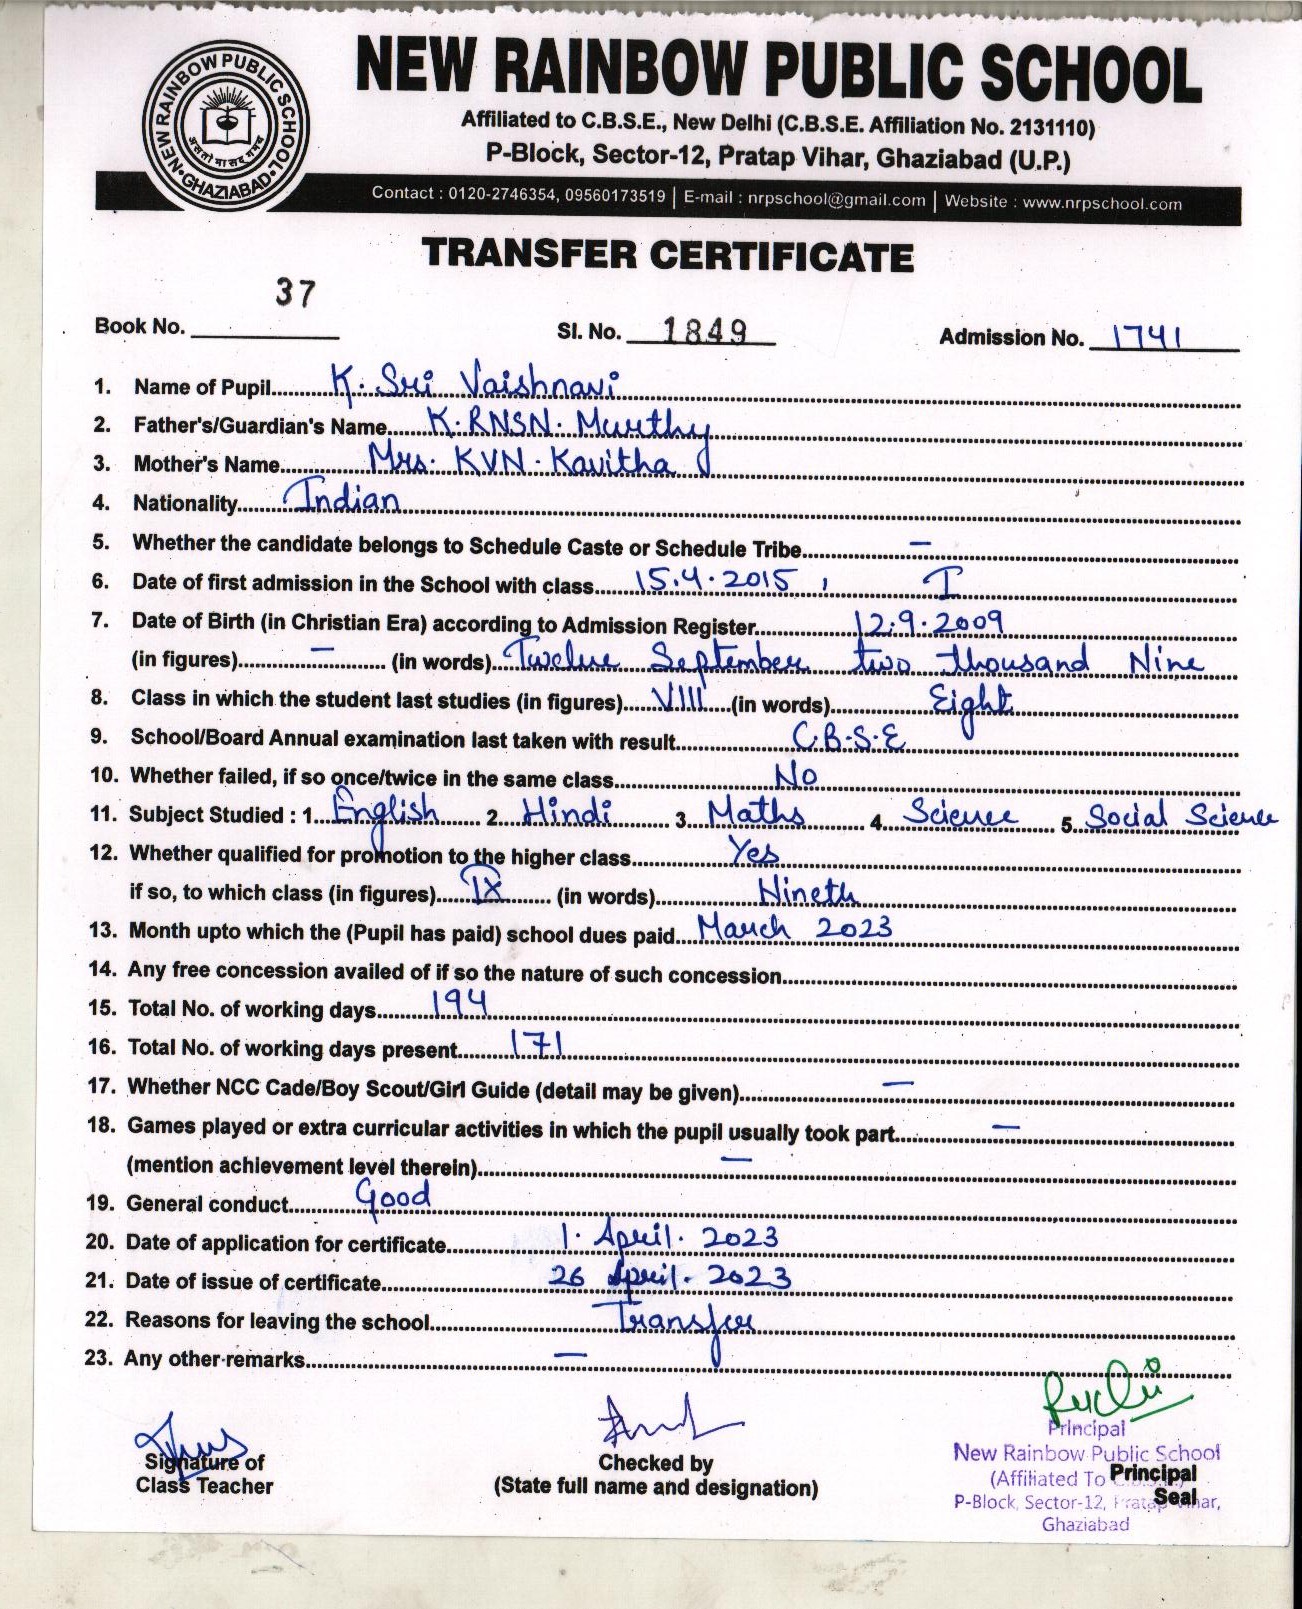 NEW RAINBOW PUBLIC SCHOOL • GHAZIABAD •
असतो मा सद् गमय
NEW RAINBOW PUBLIC SCHOOL
Affiliated to C.B.S.E., New Delhi (C.B.S.E. Affiliation No. 2131110)
P-Block, Sector-12, Pratap Vihar, Ghaziabad (U.P.)
Contact : 0120-2746354, 09560173519 | E-mail : nrpschool@gmail.com | Website : www.nrpschool.com
TRANSFER CERTIFICATE
Book No. 37 Sl. No. 1849 Admission No. 1741
1. Name of Pupil K. Sri Vaishnavi
2. Father's/Guardian's Name K. RNSN. Murthy
3. Mother's Name Mrs. KVN. Kavitha
4. Nationality Indian
5. Whether the candidate belongs to Schedule Caste or Schedule Tribe —
6. Date of first admission in the School with class 15.4.2015, I
7. Date of Birth (in Christian Era) according to Admission Register 12.9.2009
(in figures) — (in words) Twelve September two thousand Nine
8. Class in which the student last studies (in figures) VIII (in words) Eight
9. School/Board Annual examination last taken with result C.B.S.E
10. Whether failed, if so once/twice in the same class No
11. Subject Studied : 1. English 2. Hindi 3. Maths 4. Science 5. Social Science
12. Whether qualified for promotion to the higher class Yes
if so, to which class (in figures) IX (in words) Nineth
13. Month upto which the (Pupil has paid) school dues paid March 2023
14. Any free concession availed of if so the nature of such concession
15. Total No. of working days 194
16. Total No. of working days present 171
17. Whether NCC Cade/Boy Scout/Girl Guide (detail may be given) —
18. Games played or extra curricular activities in which the pupil usually took part —
(mention achievement level therein) —
19. General conduct Good
20. Date of application for certificate 1. April. 2023
21. Date of issue of certificate 26 April. 2023
22. Reasons for leaving the school Transfer
23. Any other remarks —
Signature of
Class Teacher
Checked by
(State full name and designation)
Principal
New Rainbow Public School
(Affiliated To
P-Block, Sector-12, Pratap Vihar,
Ghaziabad
Principal
Seal